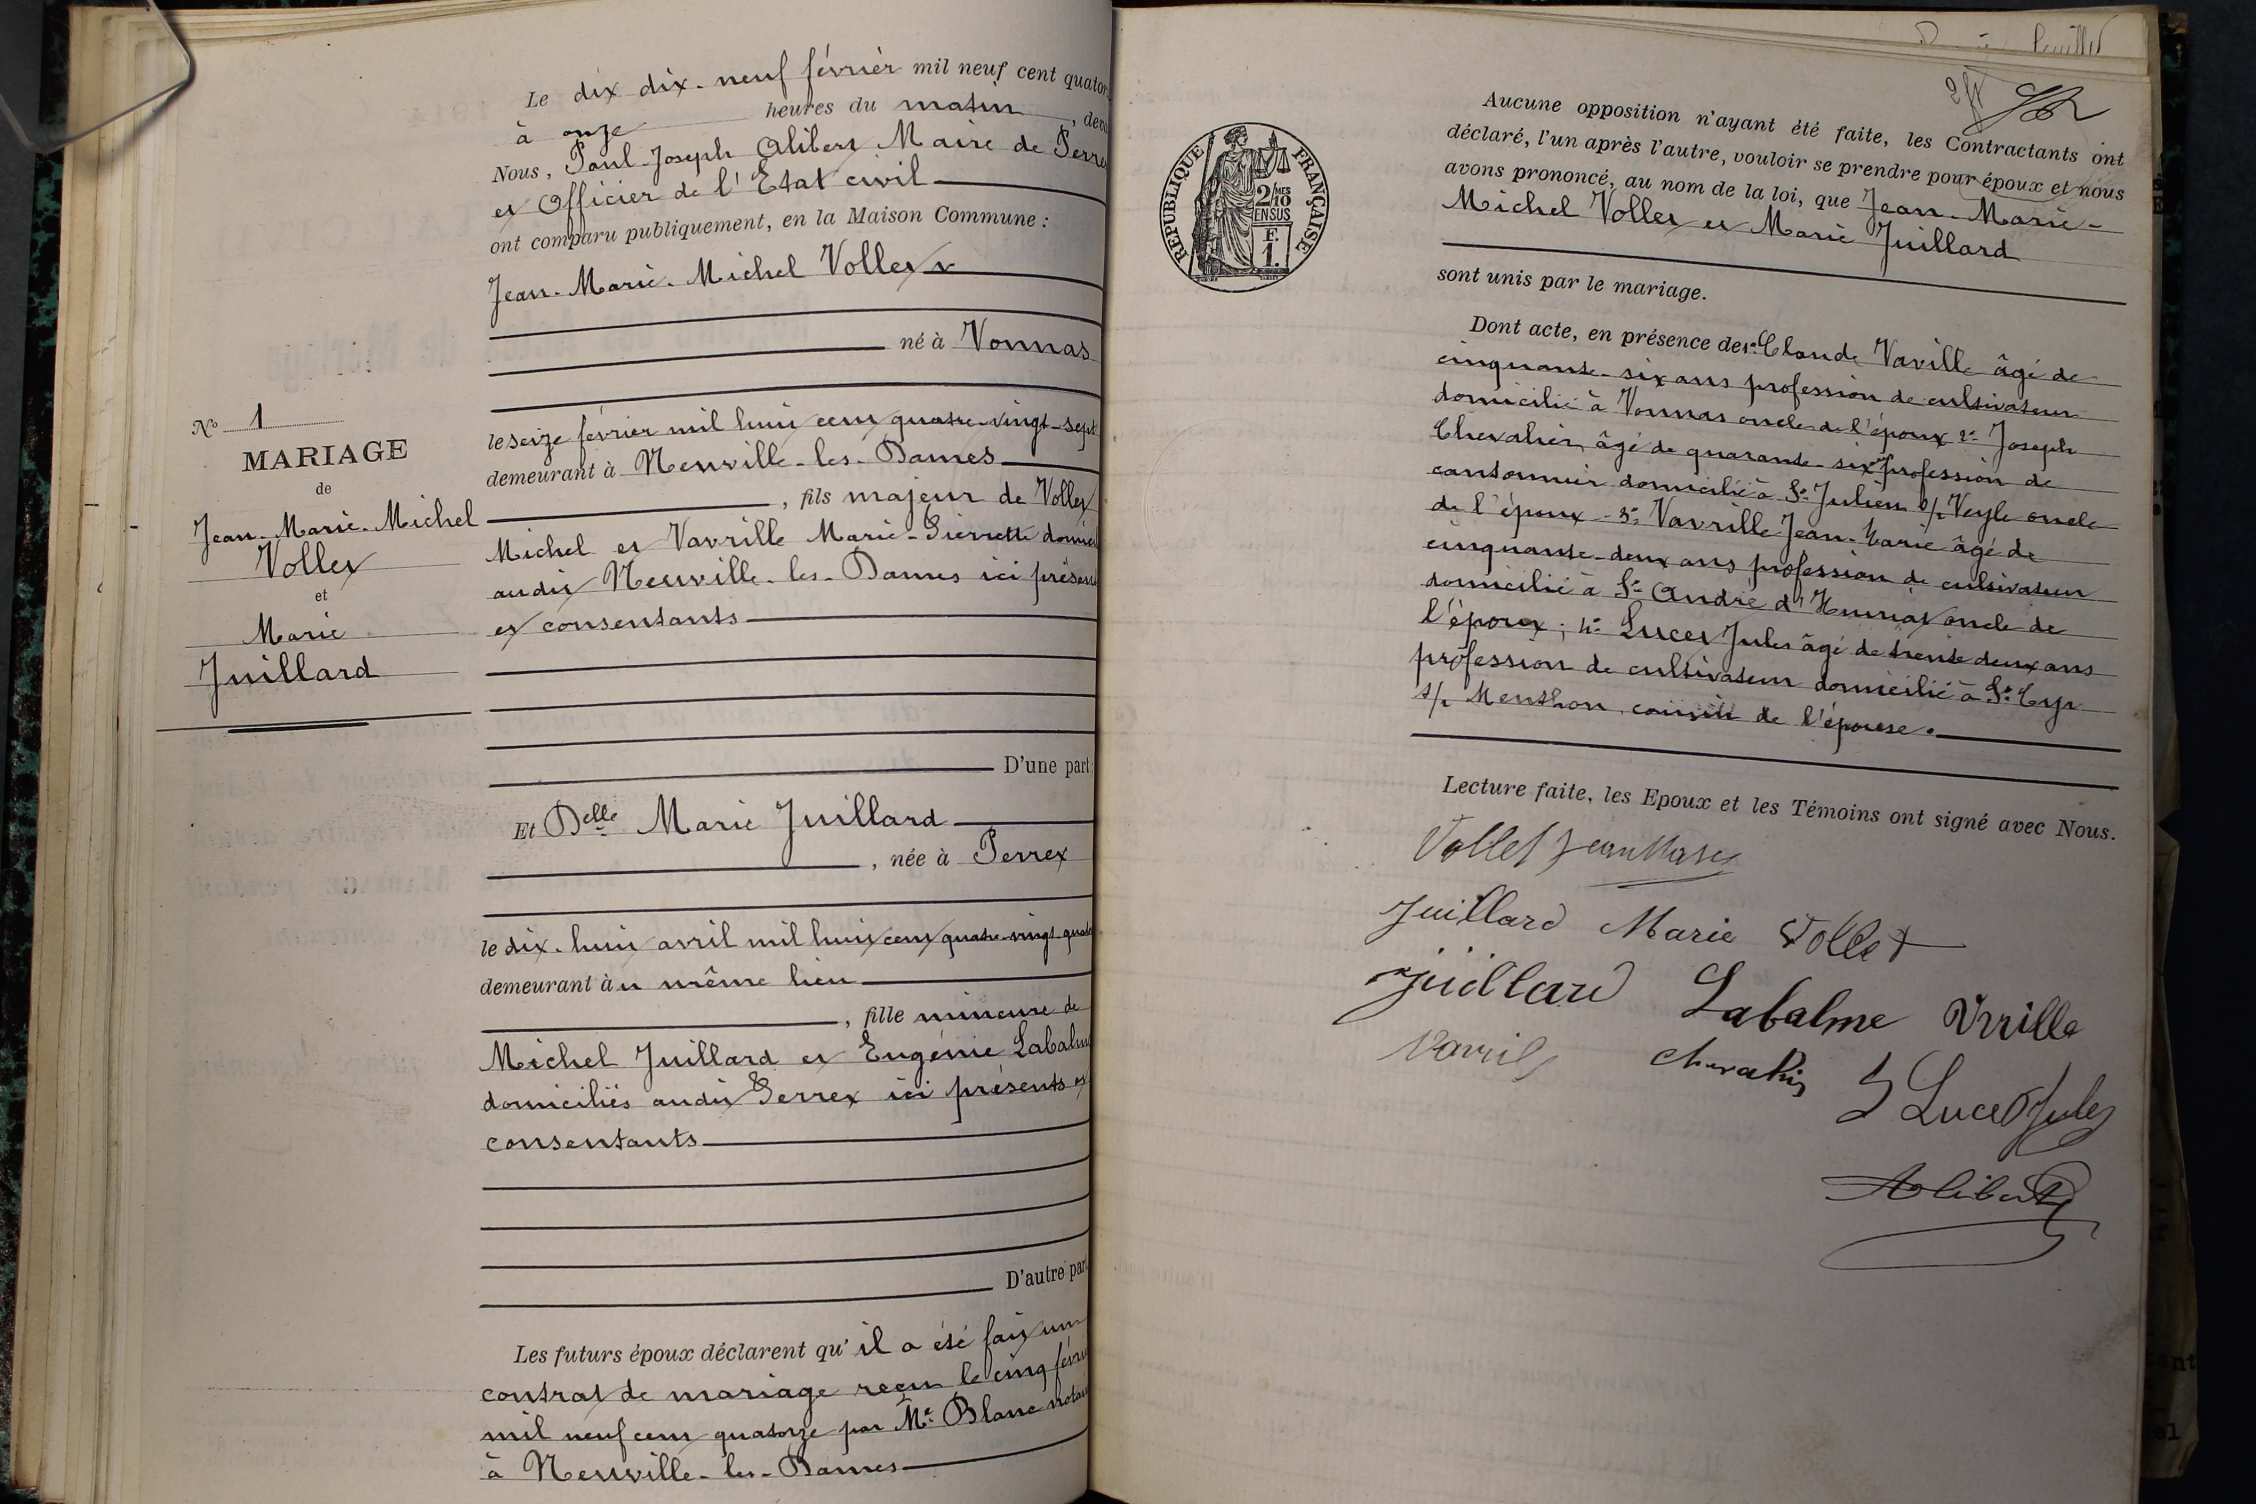 Le dix dix-neuf février mil neuf cent quator
à onze heures du matin, deva
Nous, Paul Joseph Alibert Maire de Perrex
et Officier de l'Etat civil
ont comparu publiquement, en la Maison Commune :
Jean-Marie-Michel Vollet
né à Vonnas
le seize février mil huit cent quatre-vingt-sept
demeurant à Neuville-les-Dames
, fils majeur de Vollet
Michel et Vavrille Marie-Pierrette domici
audit Neuville-les-Dames ici présents
et consentants
D'une part;
Nº 1
MARIAGE
de
Jean-Marie-Michel
Vollet
et
Marie
Juillard
Et Delle Marie Juillard
, née à Perrex
le dix-huit avril mil huit cent quatre-vingt-quato
demeurant àu même lieu
, fille mineure de
Michel Juillard et Eugénie Labalme
domiciliés audit Perrex ici présents et
consentants
D'autre part
Les futurs époux déclarent qu'il a été fait un
contrat de mariage reçu le cinq févri
mil neuf cent quatorze par Me Blanc notai
à Neuville-les-Dames
RÉPUBLIQUE FRANÇAISE
2/10 MES
EN SUS
F.
1.
Aucune opposition n'ayant été faite, les Contractants ont
déclaré, l'un après l'autre, vouloir se prendre pour époux et nous
avons prononcé, au nom de la loi, que Jean-Marie-
Michel Vollet et Marie Juillard
sont unis par le mariage.
Dont acte, en présence de 1º Claude Vaville âgé de
cinquante-six ans profession de cultivateur
domicilié à Vonnas oncle de l'époux 2º Joseph
Chevalier, âgé de quarante-six ans profession de
cantonnier domicilié à St Julien s/r Veyle oncle
de l'époux 3º Vavrille Jean-Marie âgé de
cinquante-deux ans profession de cultivateur
domicilié à St André d'Huiriat oncle de
l'époux ; 4º Lucet Jules âgé de trente deux ans
profession de cultivateur domicilié à St Cyr
s/r Menthon, cousin de l'épouse.
Lecture faite, les Epoux et les Témoins ont signé avec Nous.
Vollet Jean Marie
Juillard Marie Vollet
Juillard Labalme Vrille
Vavrille Chevalier Lucet Jules
Alibert